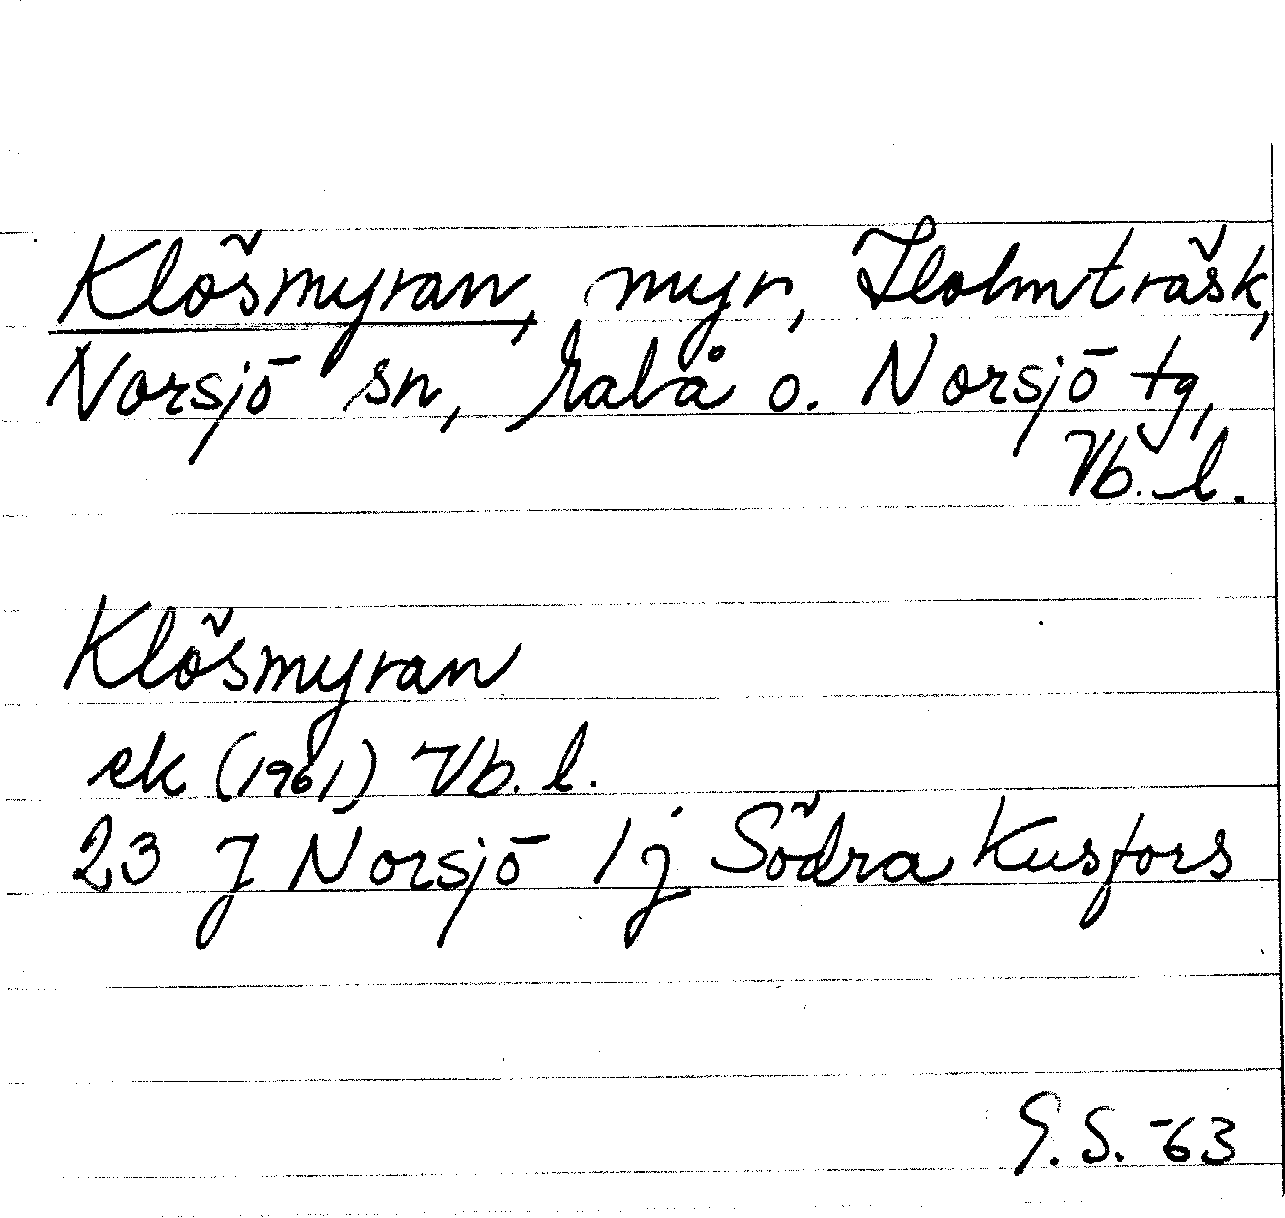 Klösmyran, myr, Holmträsk,
Norsjö sn, Malå o. Norsjö tg,
Vb. l.
Klösmyran
ek (1961) Vb. l.
23 J Norsjö 1 j Södra Kusfors
G.S. -63